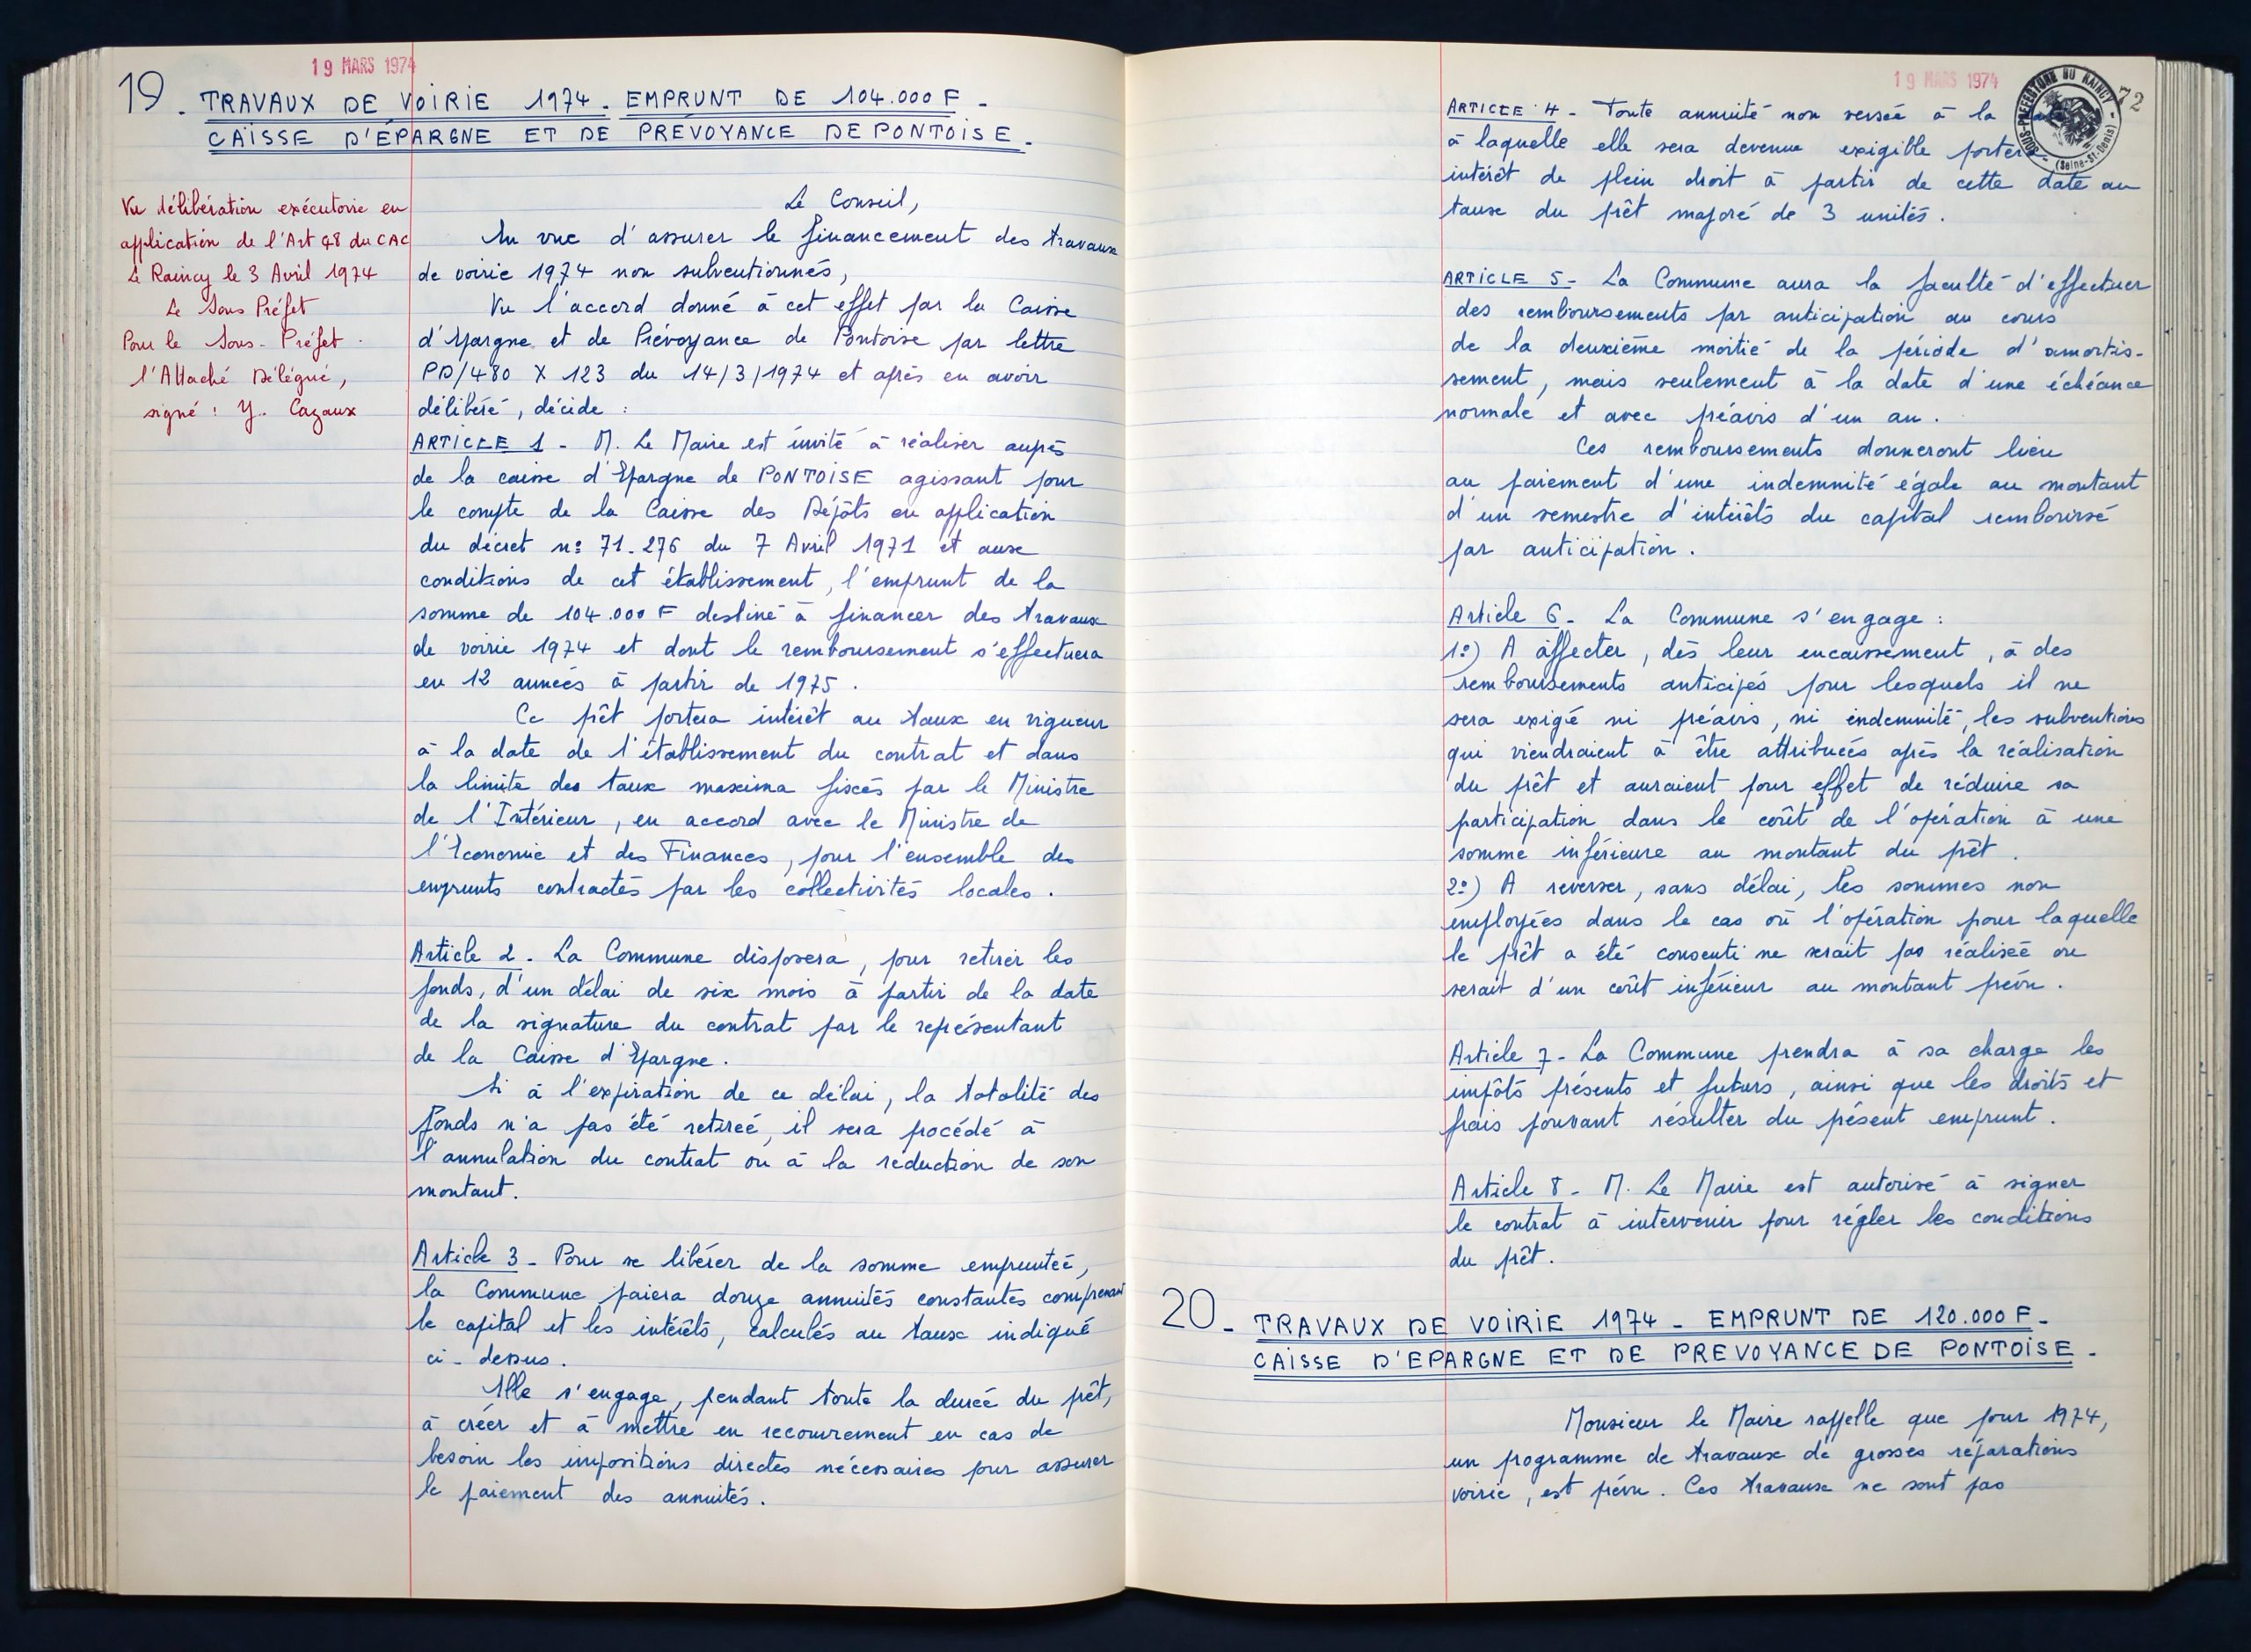 19 MARS 1974
19 - TRAVAUX DE VOIRIE 1974 - EMPRUNT DE 104.000 F -
CAISSE D'ÉPARGNE ET DE PRÉVOYANCE DE PONTOISE -
Vu délibération exécutoire en
application de l'Art 48 du CAC
Le Raincy le 3 Avril 1974
Le Sous Préfet
Pour le Sous-Préfet
l'Attaché Délégué,
signé : Y. Cazaux
Le Conseil,
En vue d'assurer le financement des travaux
de voirie 1974 non subventionnés,
Vu l'accord donné à cet effet par la Caisse
d'Epargne et de Prévoyance de Pontoise par lettre
PD/480 X 123 du 14/3/1974 et après en avoir
délibéré, décide :
ARTICLE 1 - M. Le Maire est invité à réaliser auprès
de la caisse d'Epargne de PONTOISE agissant pour
le compte de la Caisse des Dépôts en application
du décret n° 71.276 du 7 Avril 1971 et aux
conditions de cet établissement, l'emprunt de la
somme de 104.000 F destiné à financer des travaux
de voirie 1974 et dont le remboursement s'effectuera
en 12 années à partir de 1975.
Ce prêt portera intérêt au taux en vigueur
à la date de l'établissement du contrat et dans
la limite des taux maxima fixés par le Ministre
de l'Intérieur, en accord avec le Ministre de
l'Economie et des Finances, pour l'ensemble des
emprunts contractés par les collectivités locales.
Article 2 - La Commune disposera, pour retirer les
fonds, d'un délai de six mois à partir de la date
de la signature du contrat par le représentant
de la Caisse d'Epargne.
Si à l'expiration de ce délai, la totalité des
fonds n'a pas été retirée, il sera procédé à
l'annulation du contrat ou à la réduction de son
montant.
Article 3 - Pour se libérer de la somme empruntée,
la Commune paiera douze annuités constantes comprenant
le capital et les intérêts, calculés au taux indiqué
ci-dessus.
Elle s'engage, pendant toute la durée du prêt,
à créer et à mettre en recouvrement en cas de
besoin les impositions directes nécessaires pour assurer
le paiement des annuités.
19 MARS 1974
SOUS-PREFECTURE DU RAINCY - (Seine-St-Denis) -
72
ARTICLE 4 - Toute annuité non versée à la
à laquelle elle sera devenue exigible portera
intérêt de plein droit à partir de cette date au
taux du prêt majoré de 3 unités.
ARTICLE 5 - La Commune aura la faculté d'effectuer
des remboursements par anticipation au cours
de la deuxième moitié de la période d'amortis-
sement, mais seulement à la date d'une échéance
normale et avec préavis d'un an.
Ces remboursements donneront lieu
au paiement d'une indemnité égale au montant
d'un semestre d'intérêts du capital remboursé
par anticipation.
Article 6 - La Commune s'engage :
1°) A affecter, dès leur encaissement, à des
remboursements anticipés pour lesquels il ne
sera exigé ni préavis, ni indemnité, les subventions
qui viendraient à être attribuées après la réalisation
du prêt et auraient pour effet de réduire sa
participation dans le coût de l'opération à une
somme inférieure au montant du prêt.
2°) A reverser, sans délai, les sommes non
employées dans le cas où l'opération pour laquelle
le prêt a été consenti ne serait pas réalisée ou
serait d'un coût inférieur au montant prévu.
Article 7 - La Commune prendra à sa charge les
impôts présents et futurs, ainsi que les droits et
frais pouvant résulter du présent emprunt.
Article 8 - M. Le Maire est autorisé à signer
le contrat à intervenir pour régler les conditions
du prêt.
20 - TRAVAUX DE VOIRIE 1974 - EMPRUNT DE 120.000 F -
CAISSE D'EPARGNE ET DE PREVOYANCE DE PONTOISE -
Monsieur le Maire rappelle que pour 1974,
un programme de travaux de grosses réparations
voirie, est prévu. Ces travaux ne sont pas